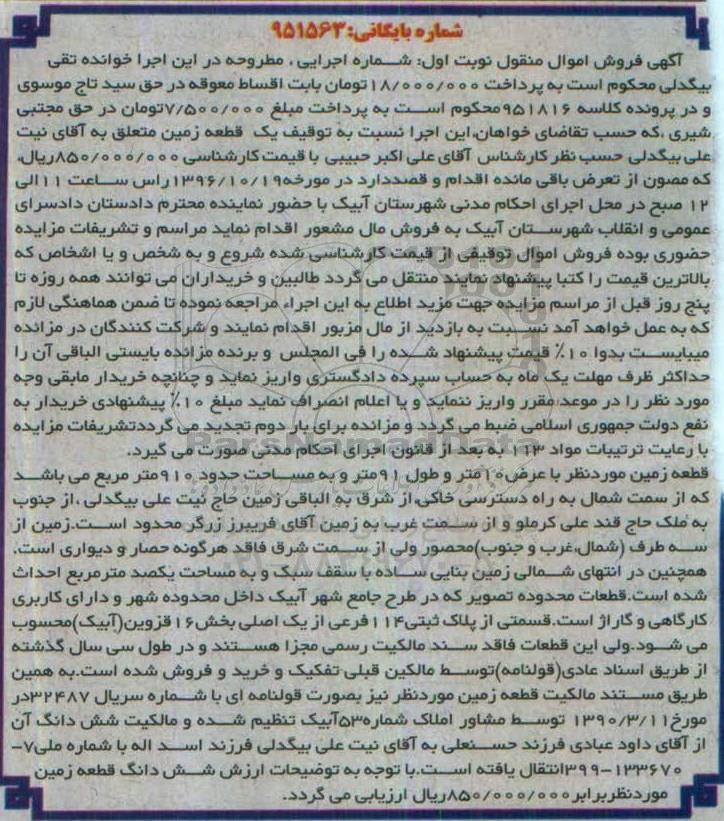 شماره بایگانی: ۹۵۱۵۶۳
آگهی فروش اموال منقول نوبت اول: شماره اجرایی، مطروحه در این اجرا خوانده تقی
بیگدلی محکوم است به پرداخت ۱۸/۰۰۰/۰۰۰تومان بابت اقساط معوقه در حق سید تاج موسوی
و در پرونده کلاسه ۹۵۱۸۱۶محکوم است به پرداخت مبلغ ۷/۵۰۰/۰۰۰تومان در حق مجتبی
شیری ،که حسب تقاضای خواهان،این اجرا نسبت به توقیف یک قطعه زمین متعلق به آقای نیت
علی بیگدلی حسب نظر کارشناس آقای علی اکبر حبیبی با قیمت کارشناسی ۸۵۰/۰۰۰/۰۰۰ریال،
که مصون از تعرض باقی مانده اقدام و قصددارد در مورخه۱۳۹۶/۱۰/۱۹راس ساعت ۱۱الی
۱۲ صبح در محل اجرای احکام مدنی شهرستان آبیک با حضور نماینده محترم دادستان دادسرای
عمومی و انقلاب شهرستان آبیک به فروش مال مشعور اقدام نماید مراسم و تشریفات مزایده
حضوری بوده فروش اموال توقیفی از قیمت کارشناسی شده شروع و به شخص و یا اشخاص که
بالاترین قیمت را کتبا پیشنهاد نمایند منتقل می گردد طالبین و خریداران می توانند همه روزه تا
پنج روز قبل از مراسم مزایده جهت مزید اطلاع به این اجراء مراجعه نموده تا ضمن هماهنگی لازم
که به عمل خواهد آمد نسبت به بازدید از مال مزبور اقدام نمایند و شرکت کنندگان در مزائده
میبایست بدوا ۱۰٪ قیمت پیشنهاد شده را فی المجلس و برنده مزائده بایستی الباقی آن را
حداکثر ظرف مهلت یک ماه به حساب سپرده دادگستری واریز نماید و چنانچه خریدار مابقی وجه
مورد نظر را در موعد مقرر واریز ننماید و یا اعلام انصراف نماید مبلغ ۱۰٪ پیشنهادی خریدار به
نفع دولت جمهوری اسلامی ضبط می گردد و مزائده برای بار دوم تجدید می گرددتشریفات مزایده
با رعایت ترتیبات مواد ۱۱۳ به بعد از قانون اجرای احکام مدنی صورت می گیرد.
قطعه زمین موردنظر با عرض۱۰متر و طول ۹۱متر و به مساحت حدود ۹۱۰متر مربع می باشد
که از سمت شمال به راه دسترسی خاکی،از شرق به الباقی زمین حاج نیت علی بیگدلی ،از جنوب
به ملک حاج قند علی کرملو و از سمت غرب به زمین آقای فریبرز زرگر محدود است.زمین از
سه طرف (شمال،غرب و جنوب)محصور ولی از سمت شرق فاقد هرگونه حصار و دیواری است.
همچنین در انتهای شمالی زمین بنایی ساده با سقف سبک و به مساحت یکصد مترمربع احداث
شده است.قطعات محدوده تصویر که در طرح جامع شهر آبیک داخل محدوده شهر و دارای کاربری
کارگاهی و گاراژ است.قسمتی از پلاک ثبتی۱۱۴فرعی از یک اصلی بخش۱۶قزوین(آبیک)محسوب
می شود.ولی این قطعات فاقد سند مالکیت رسمی مجزا هستند و در طول سی سال گذشته
از طریق اسناد عادی(قولنامه)توسط مالکین قبلی تفکیک و خرید و فروش شده است.به همین
طریق مستند مالکیت قطعه زمین موردنظر نیز بصورت قولنامه ای با شماره سریال ۳۲۴۸۷در
مورخ۱۳۹۰/۳/۱۱ توسط مشاور املاک شماره۵۳آبیک تنظیم شده و مالکیت شش دانگ آن
از آقای داود عبادی فرزند حسنعلی به آقای نیت علی بیگدلی فرزند اسد اله با شماره ملی۷-
۱۳۳۶۷۰-۳۹۹انتقال یافته است.با توجه به توضیحات ارزش شش دانگ قطعه زمین
موردنظربرابر۸۵۰/۰۰۰/۰۰۰ریال ارزیابی می گردد.
ParsNamadData